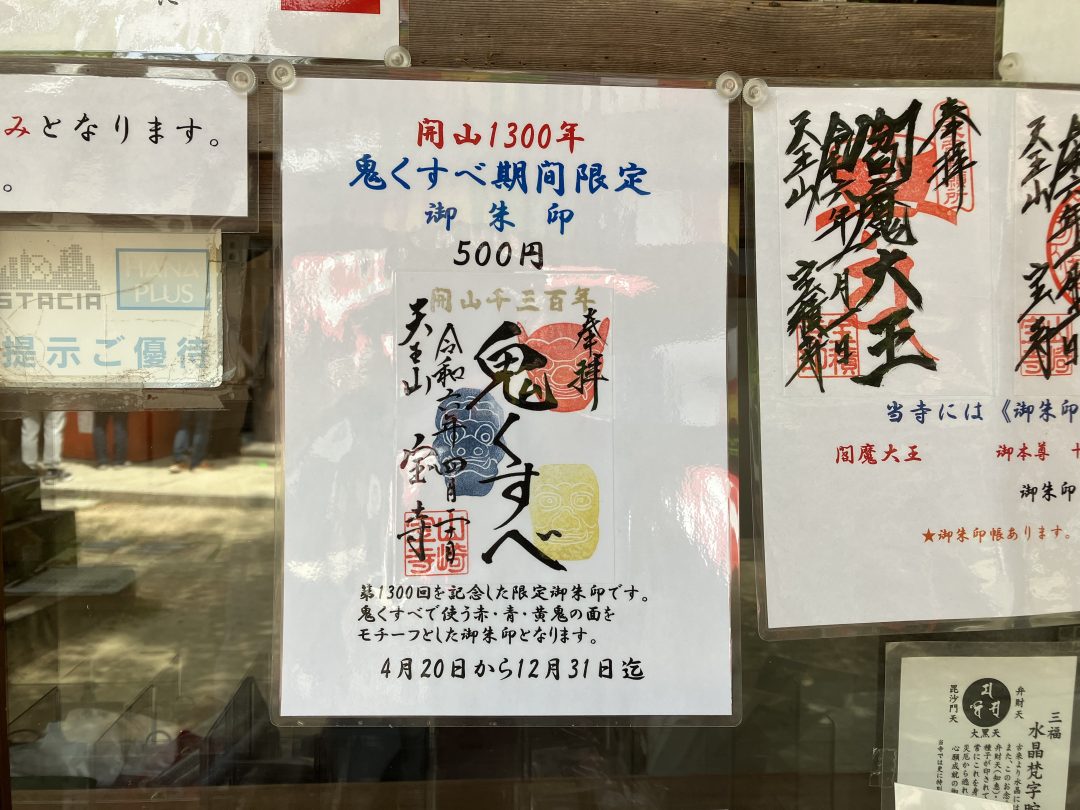 みとなります。
。
STACIA
HANA PLUS
提示ご優待
開山1300年
鬼くすべ期間限定
御朱印
500円
開山千三百年
奉拝
鬼くすべ
令和六年四月二十日
天王山 宝寺
山崎宝寺
第1300回を記念した限定御朱印です。
鬼くすべで使う赤・青・黄鬼の面を
モチーフとした御朱印となります。
4月20日から12月31日迄
奉拝
閻魔大王
天王山
当寺には《御朱印
閻魔大王
御本尊 十
御朱印
★御朱印帳あります。
三福
水晶梵字
弁財天
毘沙門天
大黒天